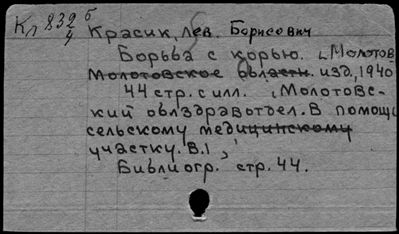 Кл 832 б
4
Красик, Лев. Борисович
Борьба с корью. „Молотов
Молотовское области. изд, 1940
44 стр. с илл. „Молотовс-
кий облздравотдел. В помощь
сельскому медицинскому
участку. В.1„
Библиогр. стр. 44.